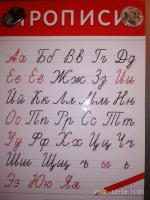 ПРОПИСИ
Аа Бб Вв Гг Дд
Ее Ёё Жж Зз Ии
Йй Кк Лл Мм Нн
Оо Пп Рр Сс Тт
Уу Фф Хх Цц Чч
Шш Щщ ъ ы ь
Ээ Юю Яя